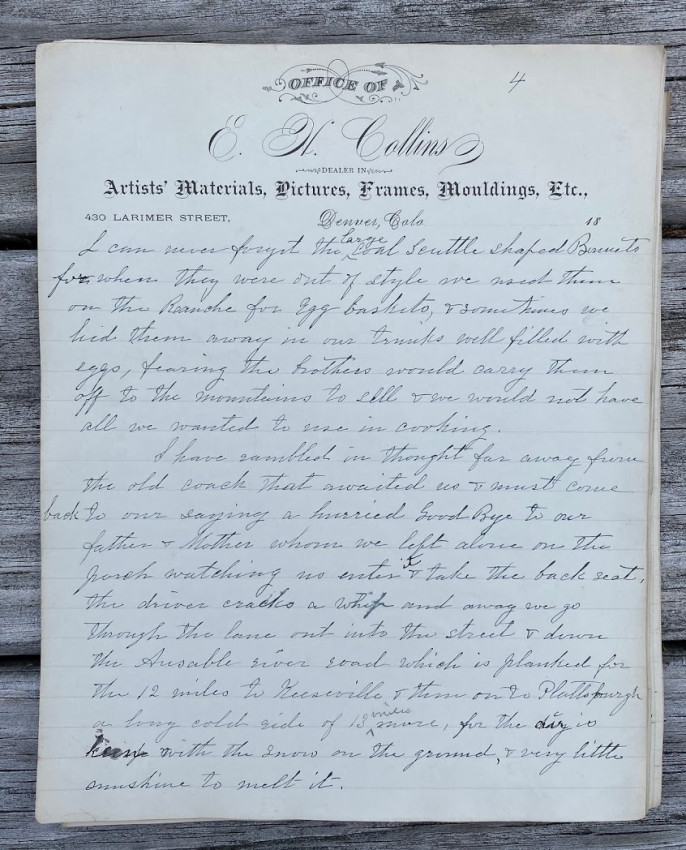 OFFICE OF
4
E. H. Collins
DEALER IN
Artists' Materials, Pictures, Frames, Mouldings, Etc.,
430 LARIMER STREET, Denver, Colo 18
large
I can never forget the coal scuttle shaped Bonnets
for when they were out of style we used them
on the Ranche for Egg baskets, & sometimes we
hid them away in our trunks well filled with
eggs, fearing the brothers would carry them
off to the mountains to sell & we would not have
all we wanted to use in cooking.
I have rambled in thought far away from
the old coach that awaited us & must come
back to our saying a hurried Good Bye to our
father & Mother whom we left alone on the
porch watching us enter it & take the back seat,
the driver cracks a whip and away we go
through the lane out into the street & down
the Ausable river road which is planked for
the 12 miles to Keeseville & then on to Plattsburgh
miles
a long cold ride of 13 more, for the air is
with the snow on the ground, & very little
sunshine to melt it.